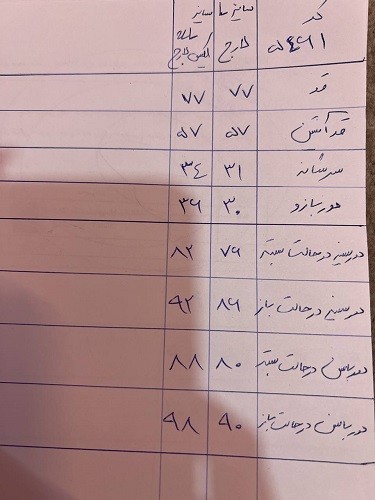 کد سایز سایز
۵۴۶۱ لارج ایکس لارج
قد ۷۷ ۷۷
قد آستین ۵۷ ۵۷
سرشانه ۳۱ ۳۴
دور بازو ۳۰ ۳۶
دور سینه در حالت بسته ۷۶ ۸۲
دور سینه در حالت باز ۸۶ ۹۲
دور باسن در حالت بسته ۸۰ ۸۸
دور باسن در حالت باز ۹۰ ۹۸